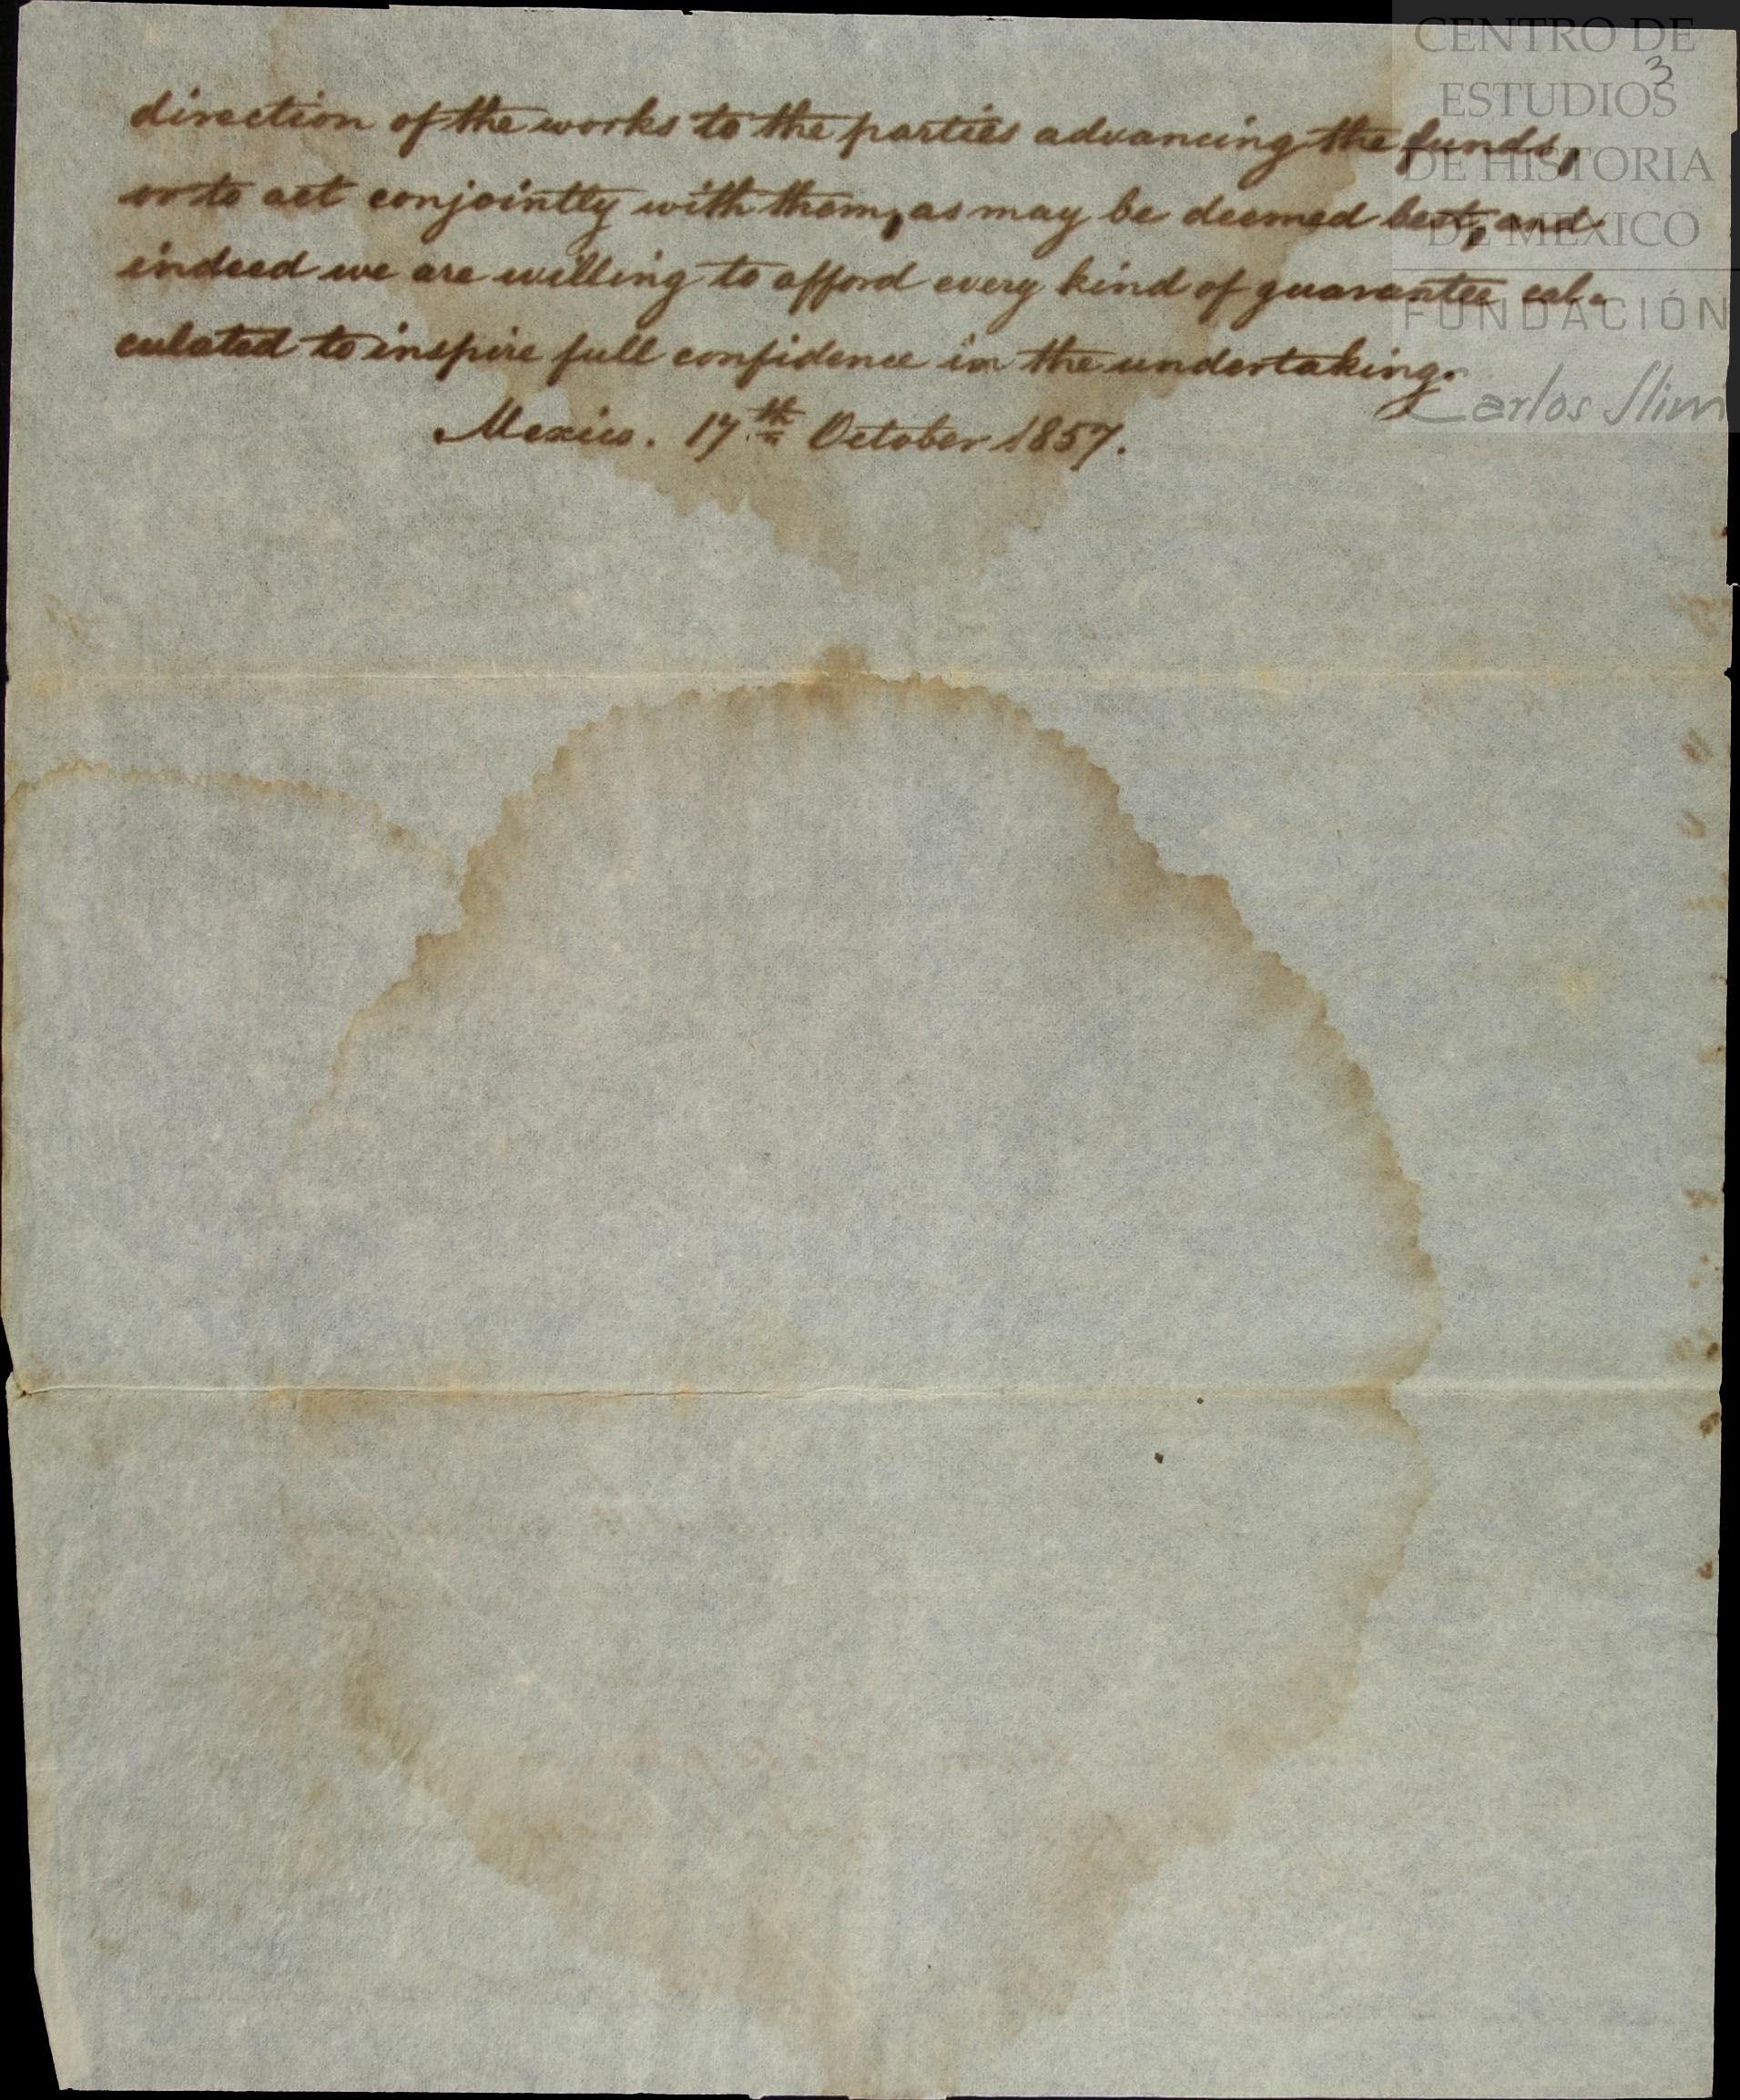 CENTRO DE
ESTUDIOS
DE HISTORIA
DE MEXICO
FUNDACIÓN
Carlos Slim
3
direction of the works to the parties advancing the funds,
or to act conjointly with them, as may be deemed best, and
indeed we are willing to afford every kind of guarantee cal-
culated to inspire full confidence in the undertaking.
Mexico. 17th October 1857.